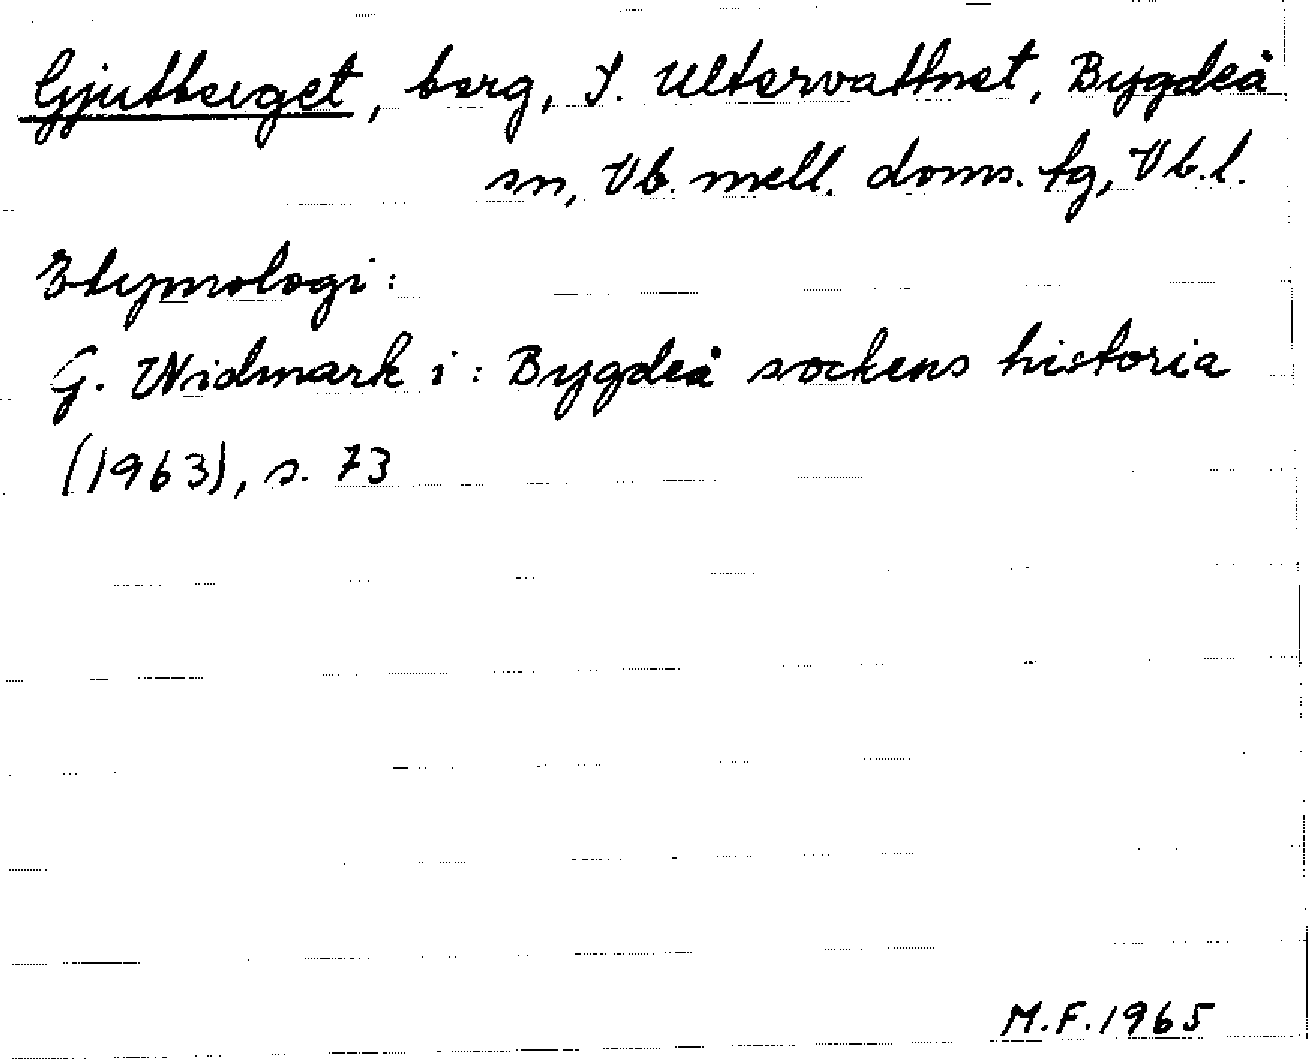 Gjutberget, berg, S. Ultervattnet, Bygdeå
sn, Vb. mell. doms. tg, Vb. l.
Etymologi:
G. Widmark i: Bygdeå sockens historia
(1963), s. 73
M.F. 1965